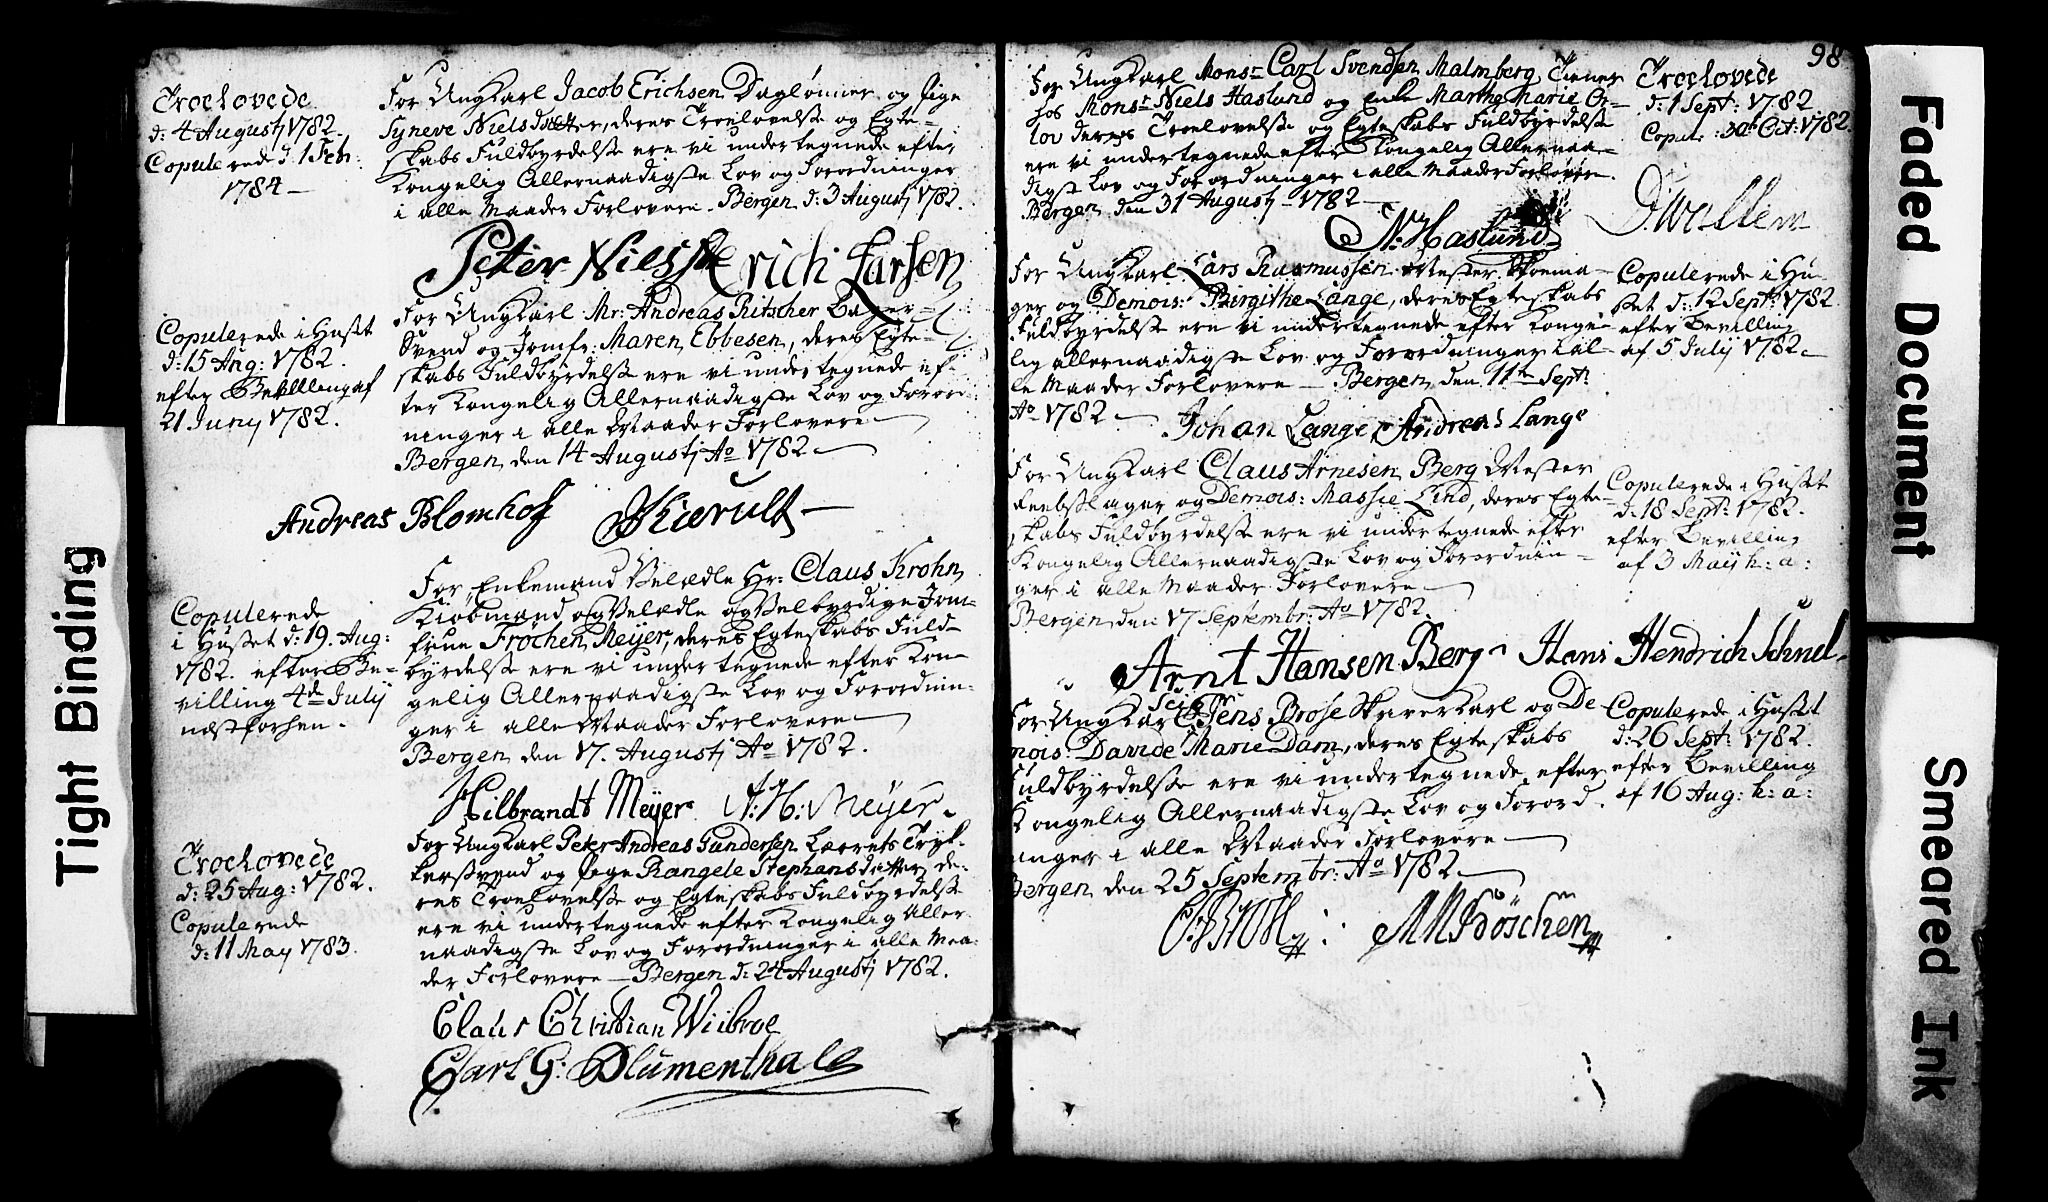 Troelovede
d: 4 Augustj 1782.
Copulerede d: 1 Feb:
1784 —
For Ungkarl Jacob Erichsen Daglønner og Pige
Syneve Nielsdatter, deres Troelovelse og Egte-
skabs Fuldbyrdelse ere vi undertegnede efter
Kongelig Allernaadigste Lov og Forordninger
i alle Maader Forlovere. Bergen d: 3 Augustj 1782.
Peter Nielsen Erich Larsen
Copulerede i Huset
d: 15 Aug: 1782.
efter Bevilling af
21 Junij 1782.
For Ungkarl Mr: Andreas Ritscher Bager-
Svend og Jomfr: Maren Ebbesen, deres Egte-
skabs Fuldbyrdelse ere vi undertegnede ef-
ter Kongelig Allernaadigste Lov og Foror-
ninger i alle Maader Forlovere
Bergen den 14 Augustj Ao 1782 —
Andreas Blomhof Kierult —
Copulerede
i Huset d: 19. Aug:
1782. efter Be-
villing 4de Julij
næstforhen.
For Enkemand Velædle Hr: Claus Krohn
Kiøbmand og Velædle og Velbyrdige Jom-
frue Frøchen Meyer, deres Egteskabs Fuld-
byrdelse ere vi undertegnede efter Kon-
gelig Allernaadigste Lov og Forordnin-
ger i alle Maader Forlovere
Bergen den 17. Augustj Ao 1782.
Hilbrandt Meyer J: H: Meyer.
Troelovede
d: 25 Aug: 1782.
Copulerede
d: 11 May 1783.
For Ungkarl Peter Andreas Gundersen Lærrets Tryk-
kersvend og Pige Rangele Stephansdatter, de-
res Troelovelse og Egteskabs Fuldbyrdelse
ere vi undertegnede efter Kongelig Aller-
naadigste Lov og Forordninger i alle Maa-
der Forlovere — Bergen d: 24 Augustj 1782.
Claus Christian Wiibroe
Carl G: Blumenthal
98
For Ungkarl Monsr Carl Svendsen Malmberg Tiener
hos Monsr Niels Haslund og Enke Marthe Marie Or-
lov deres Troelovelse og Egteskabs Fuldbyrdelse
ere vi undertegnede efter Kongelig Allernaa-
digst Lov og Forordninger i alle Maader Forlovere.
Bergen den 31 Augustj 1782 —
Troelovede
d: 1 Sept: 1782.
Copul: 30te Oct: 1782.
N: Haslund D: Wallem
For Ungkarl Lars Rasmussen Mester Skoema-
ger og Demois: Birgithe Lange, deres Egteskabs
Fuldbyrdelse ere vi undertegnede efter Konge-
lig allernaadigste Lov og Forordninger i al-
le Maader Forlovere — Bergen den 11te Sept:
Ao 1782 —
Copulerede i Hu-
set d: 12 Sept: 1782.
efter Bevilling
af 5 Julij 1782.
Johan Lange, Andreas Lange
For Ungkarl Claus Arnesen Berg Mester
Reebslager og Demois: Massie Lind, deres Egte-
skabs Fuldbyrdelse ere vi undertegnede efter
Kongelig Allernaadigste Lov og Forordnin-
ger i alle Maader Forlovere
Bergen den 17 Septembr: Ao 1782.
Copulerede i Huset
d: 18 Sept: 1782.
efter Bevilling
af 3 Maij h: a:
Arnt Hansen Berg Hans Hendrich Schnel
For Ungkarl Seigr Jens Brose Skriverkarl og De-
mois: Davide Marie Dam, deres Egteskabs
Fuldbyrdelse ere vi undertegnede efter
Kongelig Allernaadigste Lov og Forord-
ninger i alle Maader Forlovere
Bergen den 25 Septembr: Ao 1782.
Copulerede i Huset
d: 26 Sept: 1782.
efter Bevilling
af 16 Aug: h: a:
Tight Binding
Faded Document
Smeared Ink